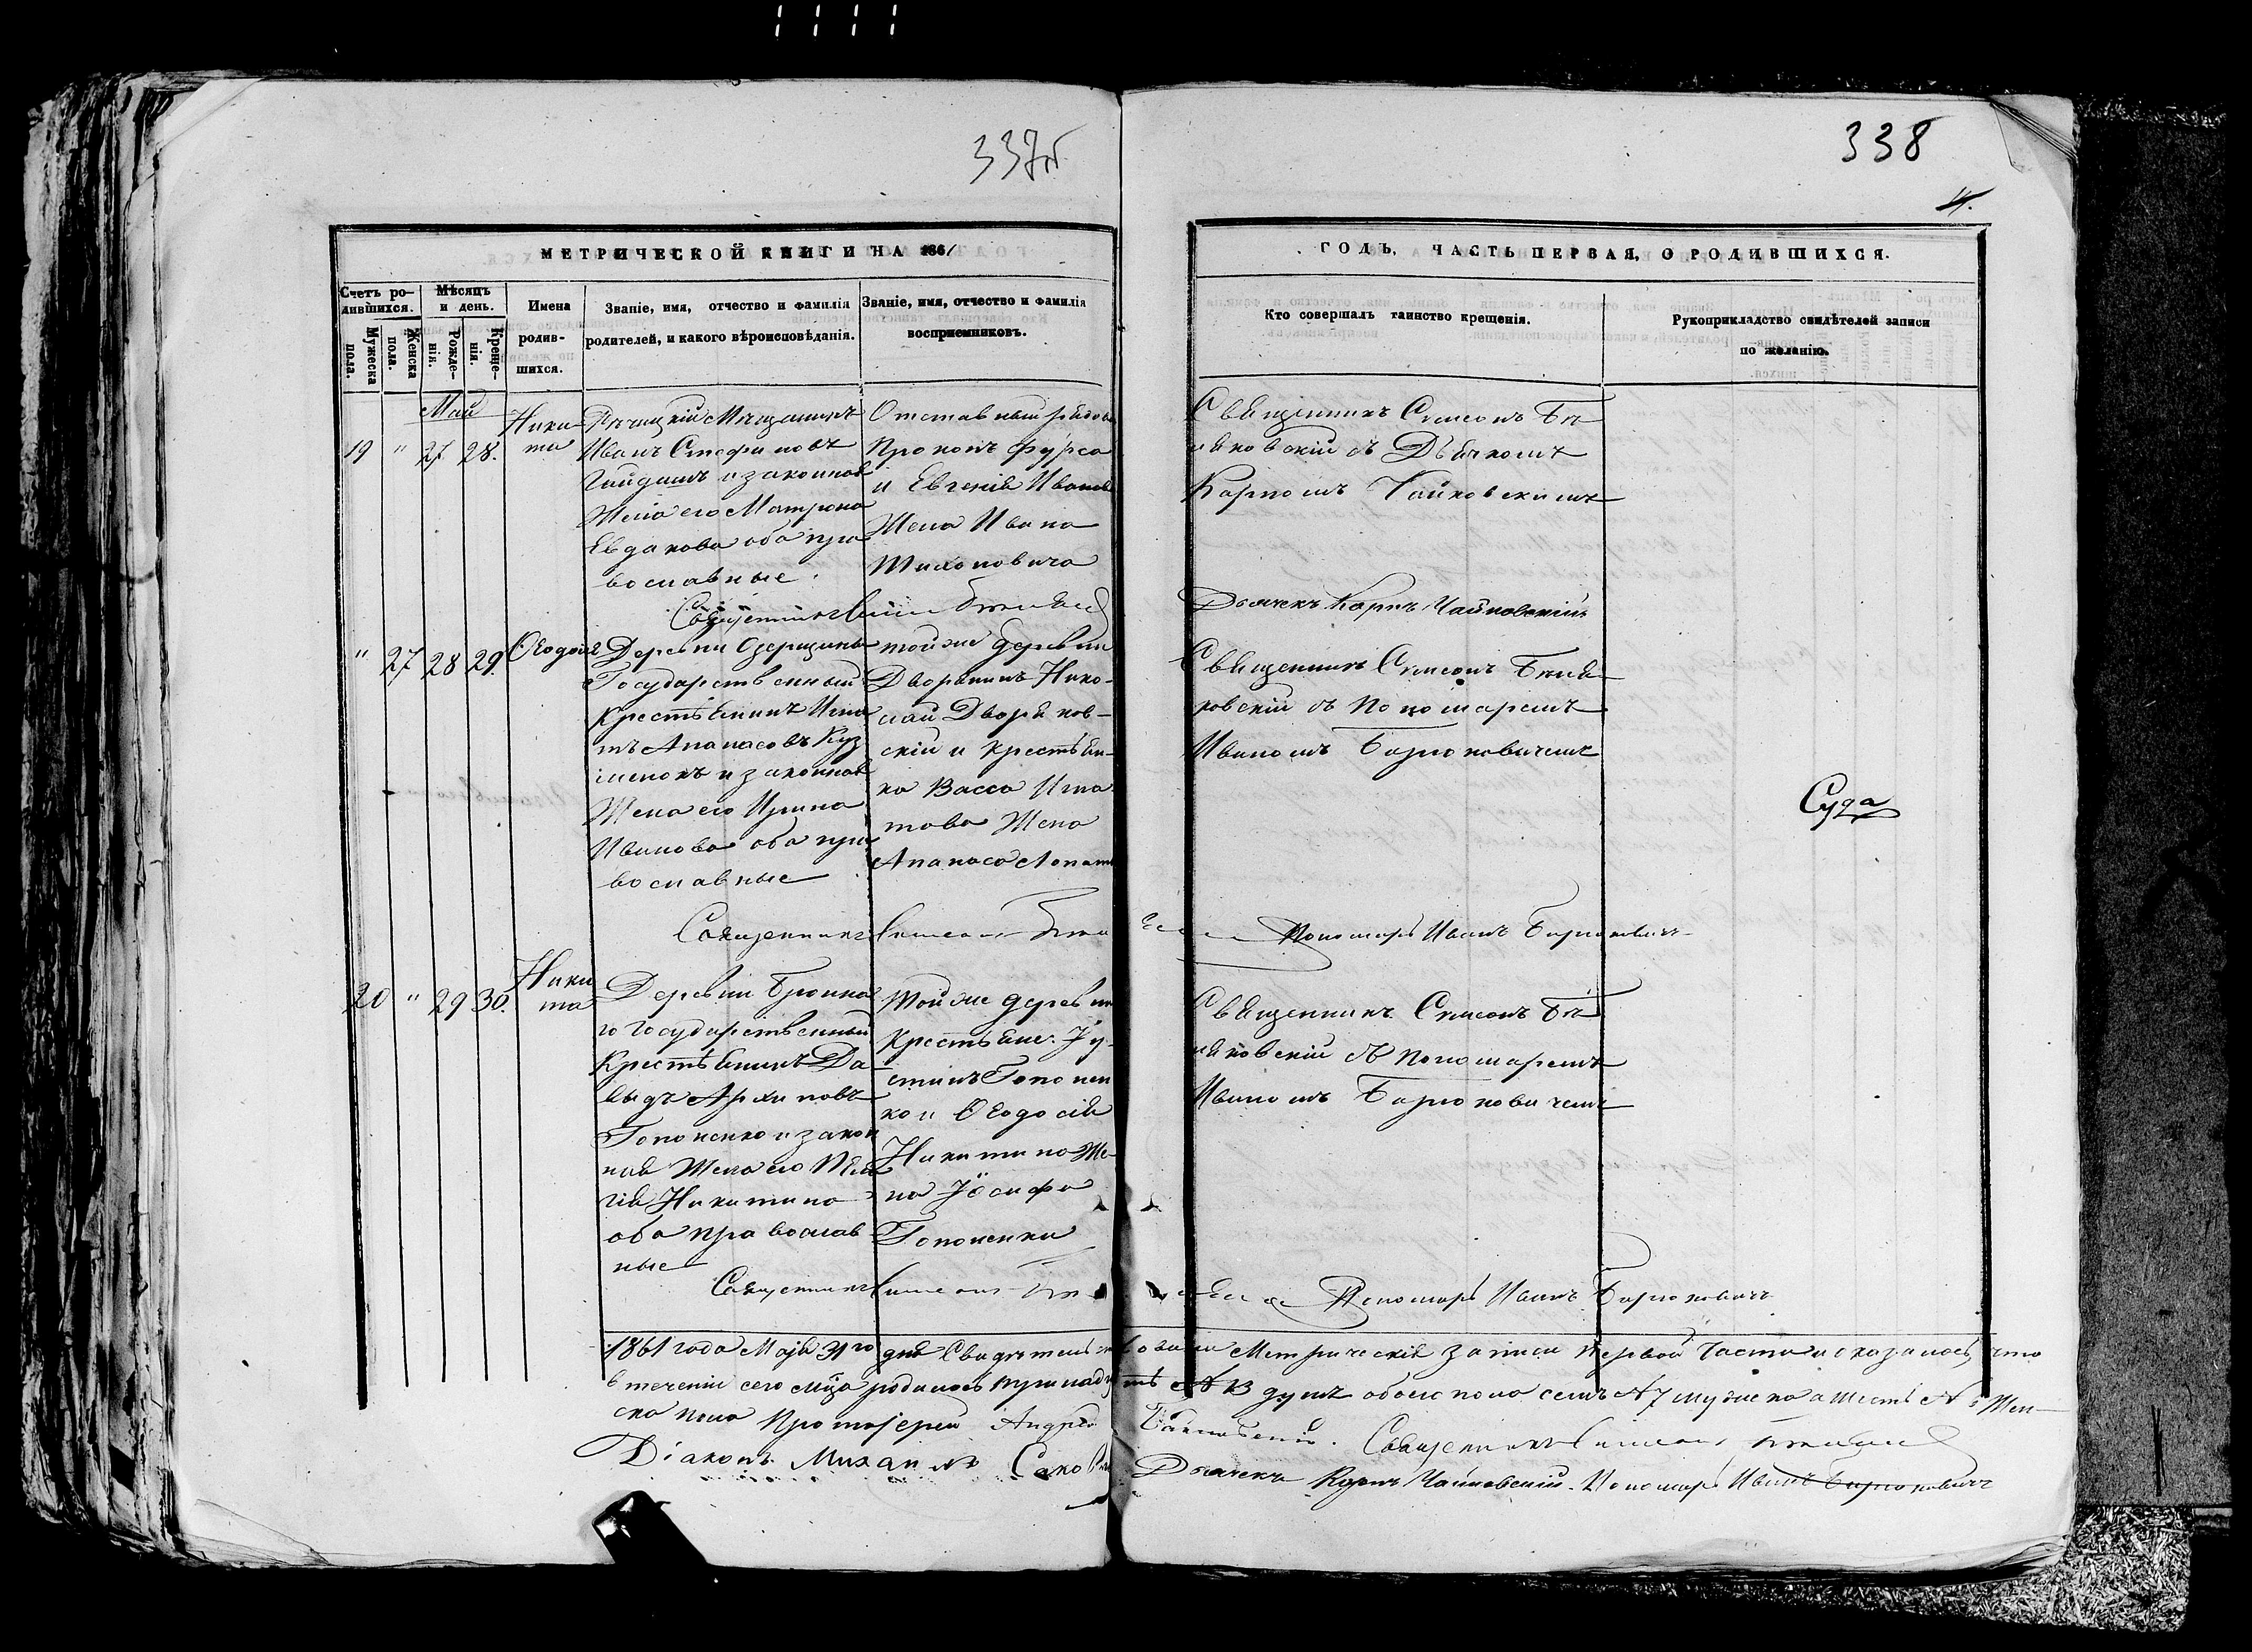 337об.
338
4.
МЕТРИЧЕСКОЙ КНИГИ НА 1861
ГОДЪ, ЧАСТЬ ПЕРВАЯ, О РОДИВШИХСЯ.
Счетъ ро-
дившихся.
Мужеска
пола.
Женска
пола.
Мѣсяцъ
и день.
Рожде-
нія.
Креще-
нія.
Имена
родив-
шихся.
Званіе, имя, отчество и фамилія
родителей, и какого вѣроисповѣданія.
Званіе, имя, отчество и фамилія
восприемниковъ.
Кто совершалъ таинство крещенія.
Рукоприкладство свидѣтелей записи
по желанію.
Май
19 " 27 28.
Ники-
та
Рѣчицкій Мѣщанинъ
Иванъ Стефановъ
и законная
Жена его Матрона
Евдакова оба пра
вославные.
Отставный рядовы
Прокопъ Фурса
и Евгенія Иванов
Жена Ивана
Тихоновича
Священникъ Симеонъ Бѣ
ляковскій съ Дьячкомъ
Карпомъ Чайковскимъ
Священникъ
Дьячекъ Карпъ Чайковскій
" 27 28 29.
Ѳеодосія
Деревни Озерщины
Государственный
Крестьянинъ Игна
тъ Апанасовъ Куз
менокъ и законная
Жена его Ирина
Иванова оба пра
вославные
тойже деревни
Дворянинъ Нико-
лай Дворяков-
скій и крестьян-
ка Васса Игна
това Жена
Апанаса
Священникъ Симеонъ Беля
ковскій съ Пономаремъ
Иваномъ Барюковичемъ
Суда
Священникъ Симеонъ
Пономарь Иванъ Барюковичъ
20 " 29 30.
Ники
та
Деревни Бронна
го Государственный
Крестьянинъ Да-
выдъ Архиповъ
Гопоненко и закон
ная Жена его Пела
гія Никитина
оба православ
ные
Тойже деревни
Крестьяне: Іу-
стинъ Гопонен
ко и Ѳеодосія
Никитина Же-
на Іосифа
Гопоненки
Священникъ Симеонъ Бѣ
ляковскій съ Пономаремъ
Иваномъ Барюковичемъ
Священникъ Симеонъ
Пономарь Иванъ Барюковичъ
1861 года Маія 31го дня Свидѣтельствовали Метрическія записи первой Части и оказалось, что
в теченіи сего мца родилось тринадцать № 13 душъ обоего пола семь № 7 мужеска а шесть № 6 Жен-
ска пола Протоіерей Андрей Священникъ Симеонъ
Діаконъ Михаилъ Дьячекъ Карпъ Чайковскій. Пономарь Иванъ Барюковичъ